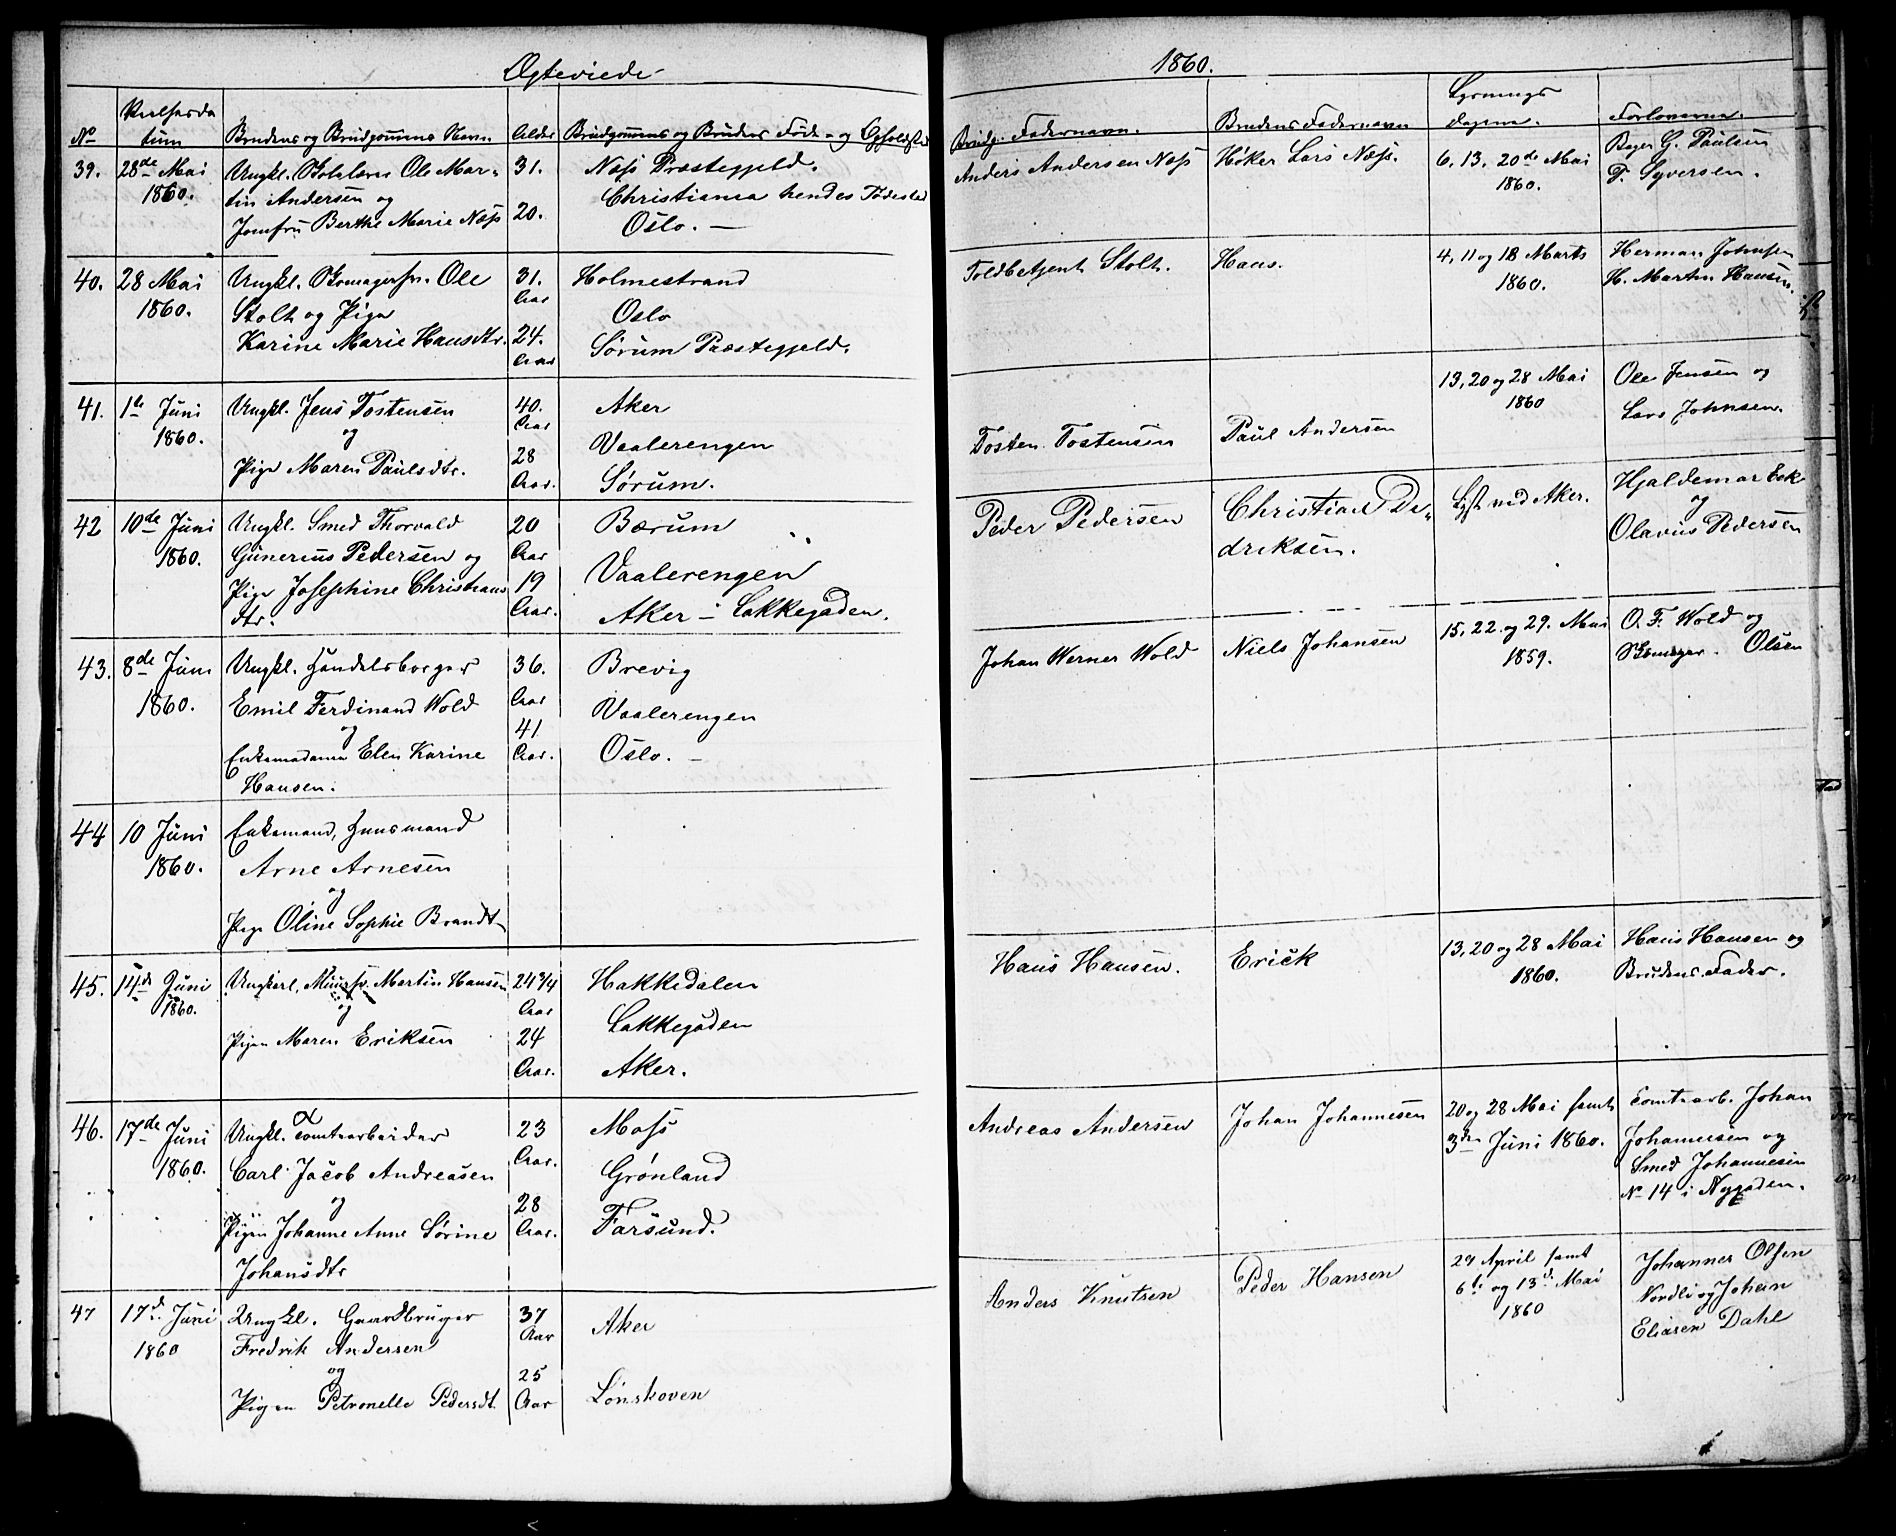 Ægteviede
1860.
No
Vielsesda
tum
Brudens og Brudgommens Navn
Alder
Brudgommens og Brudens Føde- og Opholdssted
Brudg. Fadernavn.
Brudens Fadernavn
Lysnings
dagene.
Forloverne.
39.
28de Mai
1860.
Ungkl. Ole Mar-
tin Andersen og
Jomfru Berthe Marie Næss
31.
20.
Næss Præstegjeld.
Christiania hendes Fødested
Oslo. —
Anders Andersen Næss
Høker Lars Næss.
6, 13, 20de Mai
1860.
Bager G. Paulsen
P. Syversen.
40.
28 Mai
1860.
Ungkl. Skomagersv. Ole
Stolt og Pige
Karine Marie Hansdtr.
31.
Aar
24.
Aar
Holmestrand
Oslo
Sørum Præstegjeld.
Toldbetjent Stolt.
Hans.
4, 11 og 18 Marts
1860.
Herman Johnsen
H. Martin Hansen.
41.
1te Juni
1860.
Ungkl. Jens Tostensen
og
Pige Maren Paulsdtr.
40.
Aar
28
Aar.
Aker
Vaalerengen
Sørum.
Tosten Tostensen
Paul Andersen
13, 20 og 28 Mai
1860
Ole Jensen og
Lars Johnsen.
42
10de Juni
1860.
Ungkl. Smed Thorvald
Gunerius Pedersen og
Pige Josephine Christians
dtr.
20
Aar
19
Aar.
Bærum
Vaalerengen
Aker - Lakkegaden.
Peder Pedersen
Christian De-
driksen.
Lyst ved Aker.
Hjaldemar Eek
og
Olavus Pedersen
43.
8de Juni
1860.
Ungkl. Handelsborger
Emil Ferdinand Wold
og
Enkemadame Elen Karine
Hansen.
36.
Aar
41
Aar.
Brevig
Vaalerengen
Oslo. —
Johan Werner Wold
Niels Johansen
15, 22 og 29. Mai
1859.
O. F. Wold og
Skomager. Olsen
44
10 Juni
1860.
Enkemand, Huusmand
Arne Arnesen
og
Pige Oline Sophie Brandt
45.
14de Juni
1860.
Ungkarl, Muursv. Martin Hansen
og
Pigen Maren Eriksen
24 3/4
Aar
24
Aar.
Hakkedalen
Lakkegaden
Aker.
Hans Hansen.
Erick
13, 20 og 28 Mai
1860.
Hans Hansen og
Brudens Fader.
46.
17de Juni
1860.
Ungkl. Tomtearbeider
Carl Jacob Andreasen
og
Pigen Johanne Anne Sørine
Johansdtr
23
Aar.
28
Aar.
Moss
Grønland
Farsund.
Andreas Andersen
Johan Johannesen
20 og 28 Mai samt
3die Juni 1860.
Tomtearb. Johan
Johannesen og
Smed Johannesen
No 14 i Nygaden.
47
17d. Juni
1860
Ungkl. Gaardbruger
Fredrik Andersen
og
Pigen Petronelle Pedersdt.
37
Aar
25
Aar
Aker
Lønskoven
Anders Knutsen
Peder Hansen
29 April samt
6te og 13d. Mai
1860
Johannes Olsen
Nordli og Johan
Eliasen Dahl